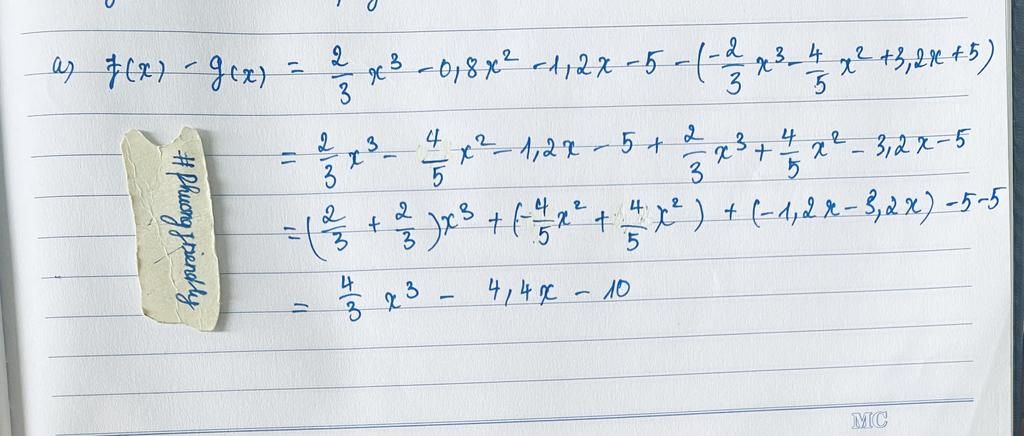 a) f(x) - g(x) = 2/3 x³ - 0,8x² - 1,2x - 5 - (-2/3 x³ - 4/5 x² + 3,2x + 5)
= 2/3 x³ - 4/5 x² - 1,2x - 5 + 2/3 x³ + 4/5 x² - 3,2x - 5
= (2/3 + 2/3)x³ + (-4/5 x² + 4/5 x²) + (-1,2x - 3,2x) - 5 - 5
= 4/3 x³ - 4,4x - 10
#phuongfriendly
MC